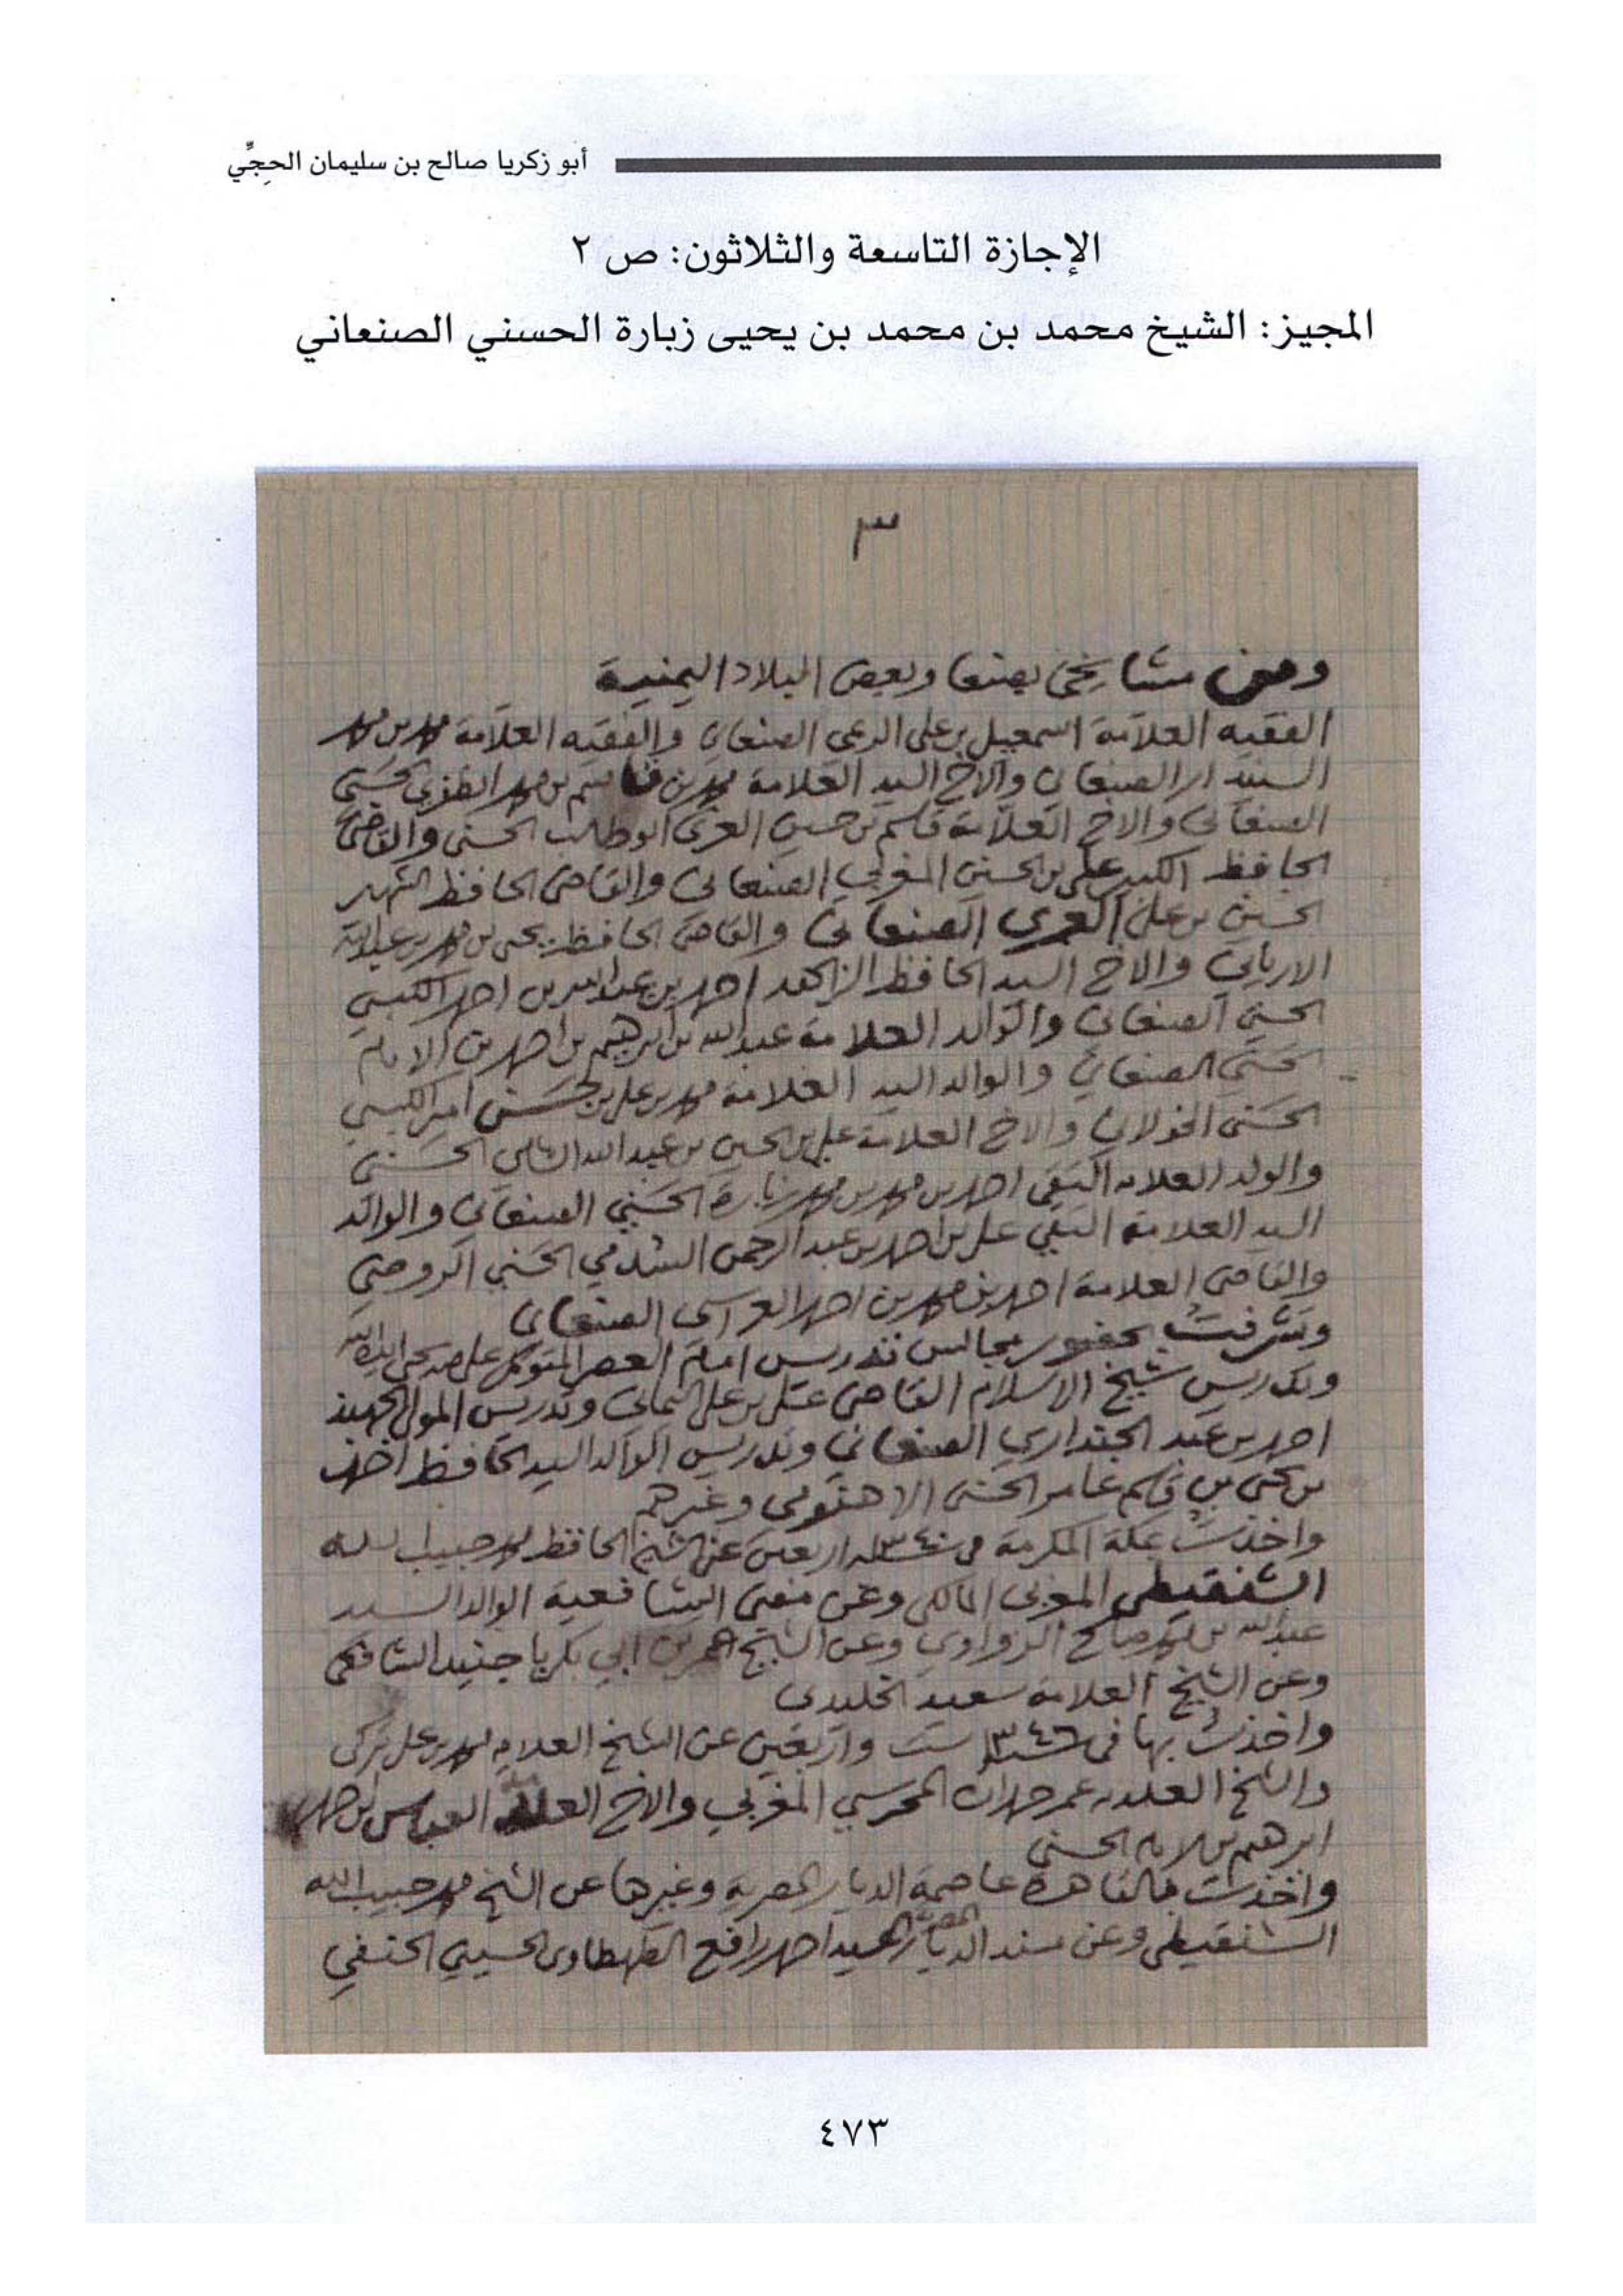 أبو زكريا صالح بن سليمان الحِجِّي
الإجازة التاسعة والثلاثون: ص ٢
المجيز: الشيخ محمد بن محمد بن يحيى زبارة الحسني الصنعاني
٣
ومن مشايخي بصنعا وبعض البلاد اليمنية
الفقيه العلامة اسمعيل بن علي الريمي الصنعاني والفقيه العلامة محمد بن محمد
السنيدار الصنعاني والاخ السيد العلامة محمد بن قاسم بن محمد الظفري الحسني
الصنعاني والاخ العلامة قاسم بن حسين العزي ابو طالب الحسني والقاضي
الحافظ الكبير علي بن الحسين المغربي الصنعاني والقاضي الحافظ الشهير
الحسين بن علي العمري الصنعاني والقاضي الحافظ يحيى بن محمد بن عبدالله
الارياني والاخ السيد الحافظ الزاهد احمد بن عبدالله بن احمد الكبسي
الحسني الصنعاني والوالد العلامة عبدالله بن ابرهيم بن احمد بن الامام
الحسني الصنعاني والوالد السيد العلامة محمد بن علي بن حسن الكبسي
الحسني الخولاني والاخ العلامة علي بن الحسين بن عبدالله الشامي الحسني
والولد العلامة التقي احمد بن محمد بن محمد زبارة الحسني الصنعاني والوالد
السيد العلامة التقي علي بن احمد بن عبد الرحمن السدمي الحسني الروضي
والقاضي العلامة احمد بن محمد بن احمد العراسي الصنعاني
وتشرفت بحضور مجالس تدريس امام العصر المتوكل على الله يحيى ايده الله
وتدريس شيخ الاسلام القاضي علي بن علي اليماني وتدريس المولى الجهبذ
احمد بن عبد الله الجنداري الصنعاني وتدريس الوالد السيد الحافظ احمد
بن يحيى بن قاسم عامر الحسني الاهنومي وغيرهم
واخذت بمكة المكرمة في سنة ١٣٤٠ اربعين عن الشيخ الحافظ محمد حبيب الله
الشنقيطي المغربي المالكي وعن مفتي الشافعية الوالد السيد
عبدالله بن محمد صالح الزواوي وعن الشيخ عمر بن ابي بكر باجنيد الشافعي
وعن الشيخ العلامة سعيد الخليدي
واخذت بها في سنة ١٣٤٦ ست واربعين عن الشيخ العلامة محمد بن علي تركي
والشيخ العلامة عمر حمدان المحرسي المغربي والاخ العلامة العباس بن احمد
ابرهيم الحسني
واخذت بالقاهرة عاصمة الديار المصرية وغيرها عن الشيخ محمد حبيب الله
الشنقيطي وعن مسند الديار المصرية السيد احمد رافع الطهطاوي الحسيني الحنفي
٤٧٣